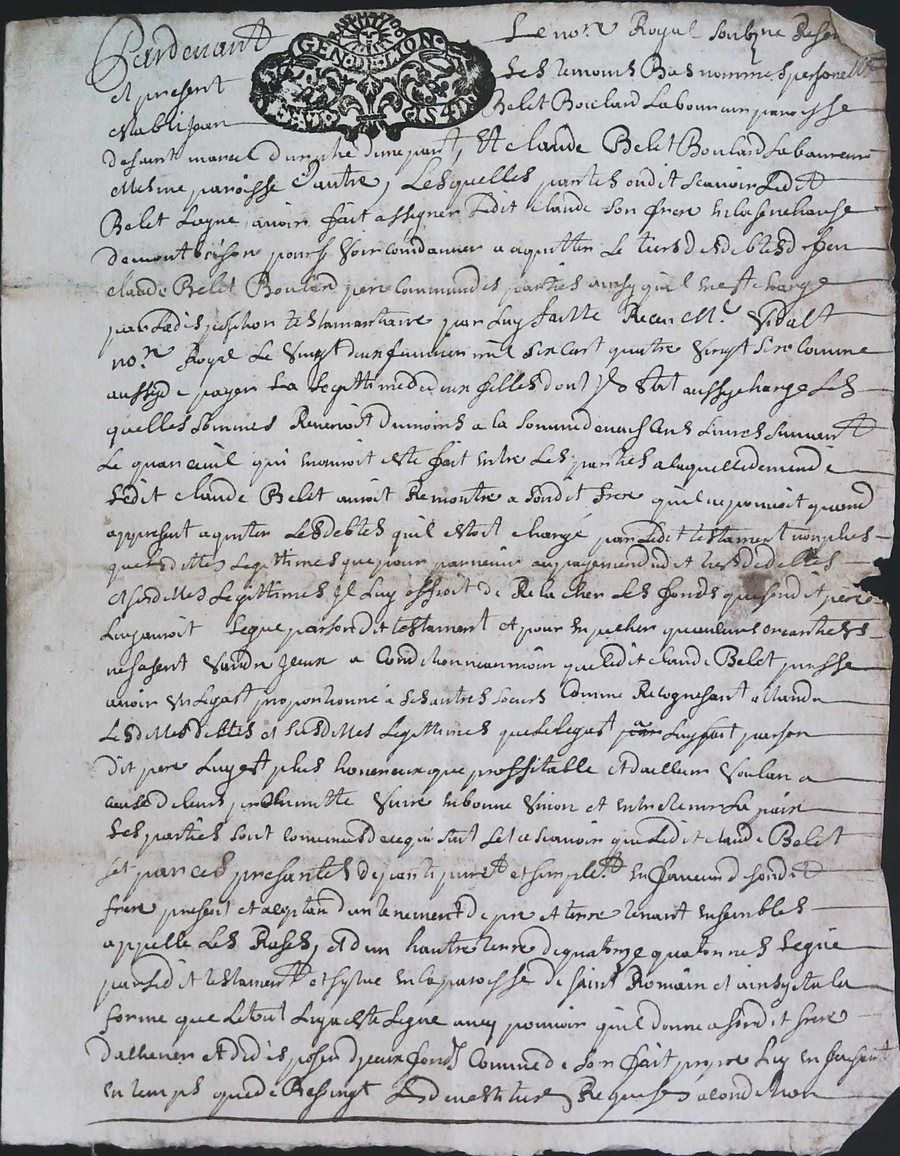 Pardevant Le no.re Royal soubzne Reser
et present Les temoins Bas nommes personel
estably Jean Belet Boulard Laboureur paroisse
GEN. DE LION
de saint marcel durphe d'une part, Et claude Belet Boulard Laboureur
mesme paroisse d'autre, Lesquelles parties ont dit scavoir Ledit
Belet Legne avoir fait assigner Ledit claude son frere en la senechause
de montbrison pour se voir condanner a aquitter le tiers des debtes de feu
claude Belet Boulard pere commun des parties ainsy qu'il en est charge
par la disposition testamantaire par Luy faitte Recu M.e Vidal
no.re Royal Le Vingt deux fevrier mil six cent quatre Vingt comme
aussy de payer La Legittime de filles dont Il estat aussy charge Les
quelles sommes Revenoit du moins a la somme de Livres suivant
Le qui en avoit este fait entre Les parties a laquelle demende
Ledit claude Belet auroit Remontre a sondit frere qu'il ne pouvoit quand
appresent aquiter Les debtes qu'il estoit charge par Ledit testament non plus
que Lesdittes Legittimes que pour parvenir au payement dudit tiers de debtes
et desdittes Legittimes Il Luy offroit de Relacher Les fonds que sondit pere
Luy auroit Legue par sondit testament et pour enpecher que Leurs creanciers
ne fasent Vandre Iceux a condition neanmoin que Ledit claude Belet puisse
avoir un Legast proportionne a ses autres soeurs comme Recognesant attandu
Lesdittes debtes et Lesdittes Legittimes que Le Legat Luy fait par son
dit pere Luy est plus honereux que proffitable et d'ailleur Voulan a
cause de leur proximitte Vivre en bonne Union et entretenir La paix
Les parties sont convenues de ce qui suit scavoir que Ledit claude Belet
par ces presantes depart puremt et simplemt en faveur de sondit
frere present et aceptand d'un tenement de pre et terre tenant ensembles
appelle Les Roses, et d'un hautre terre de quatorze quatonnes Legue
par Ledit testament et sytue en la paroisse de saint Romain et ainsy et a la
forme que Le tout Luy a este Legue avec pouvoir qu'il donne a sondit frere
d'alliener et de disposer d'Iceux fonds comme de son fait propre Luy en faisant
en temps que de Bessingt Requise a condition